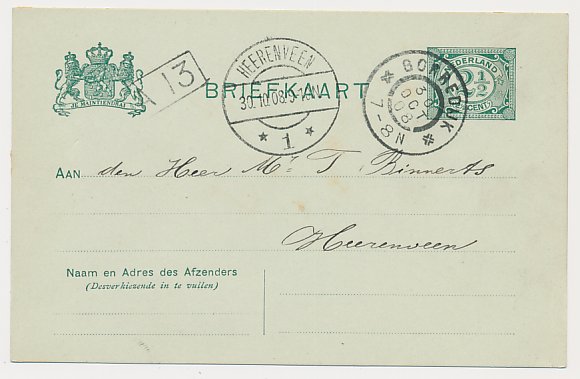 JE MAINTIENDRAI
A 13
HEERENVEEN
30.10.08 5-
1
BRIEFKAART
BORKEDIJK
OCT
08
7-8N
NEDERLAND
2½
CENT
AAN den Heer Mr. T. Binnerts
Heerenveen
Naam en Adres des Afzenders
(Desverkiezende in te vullen)